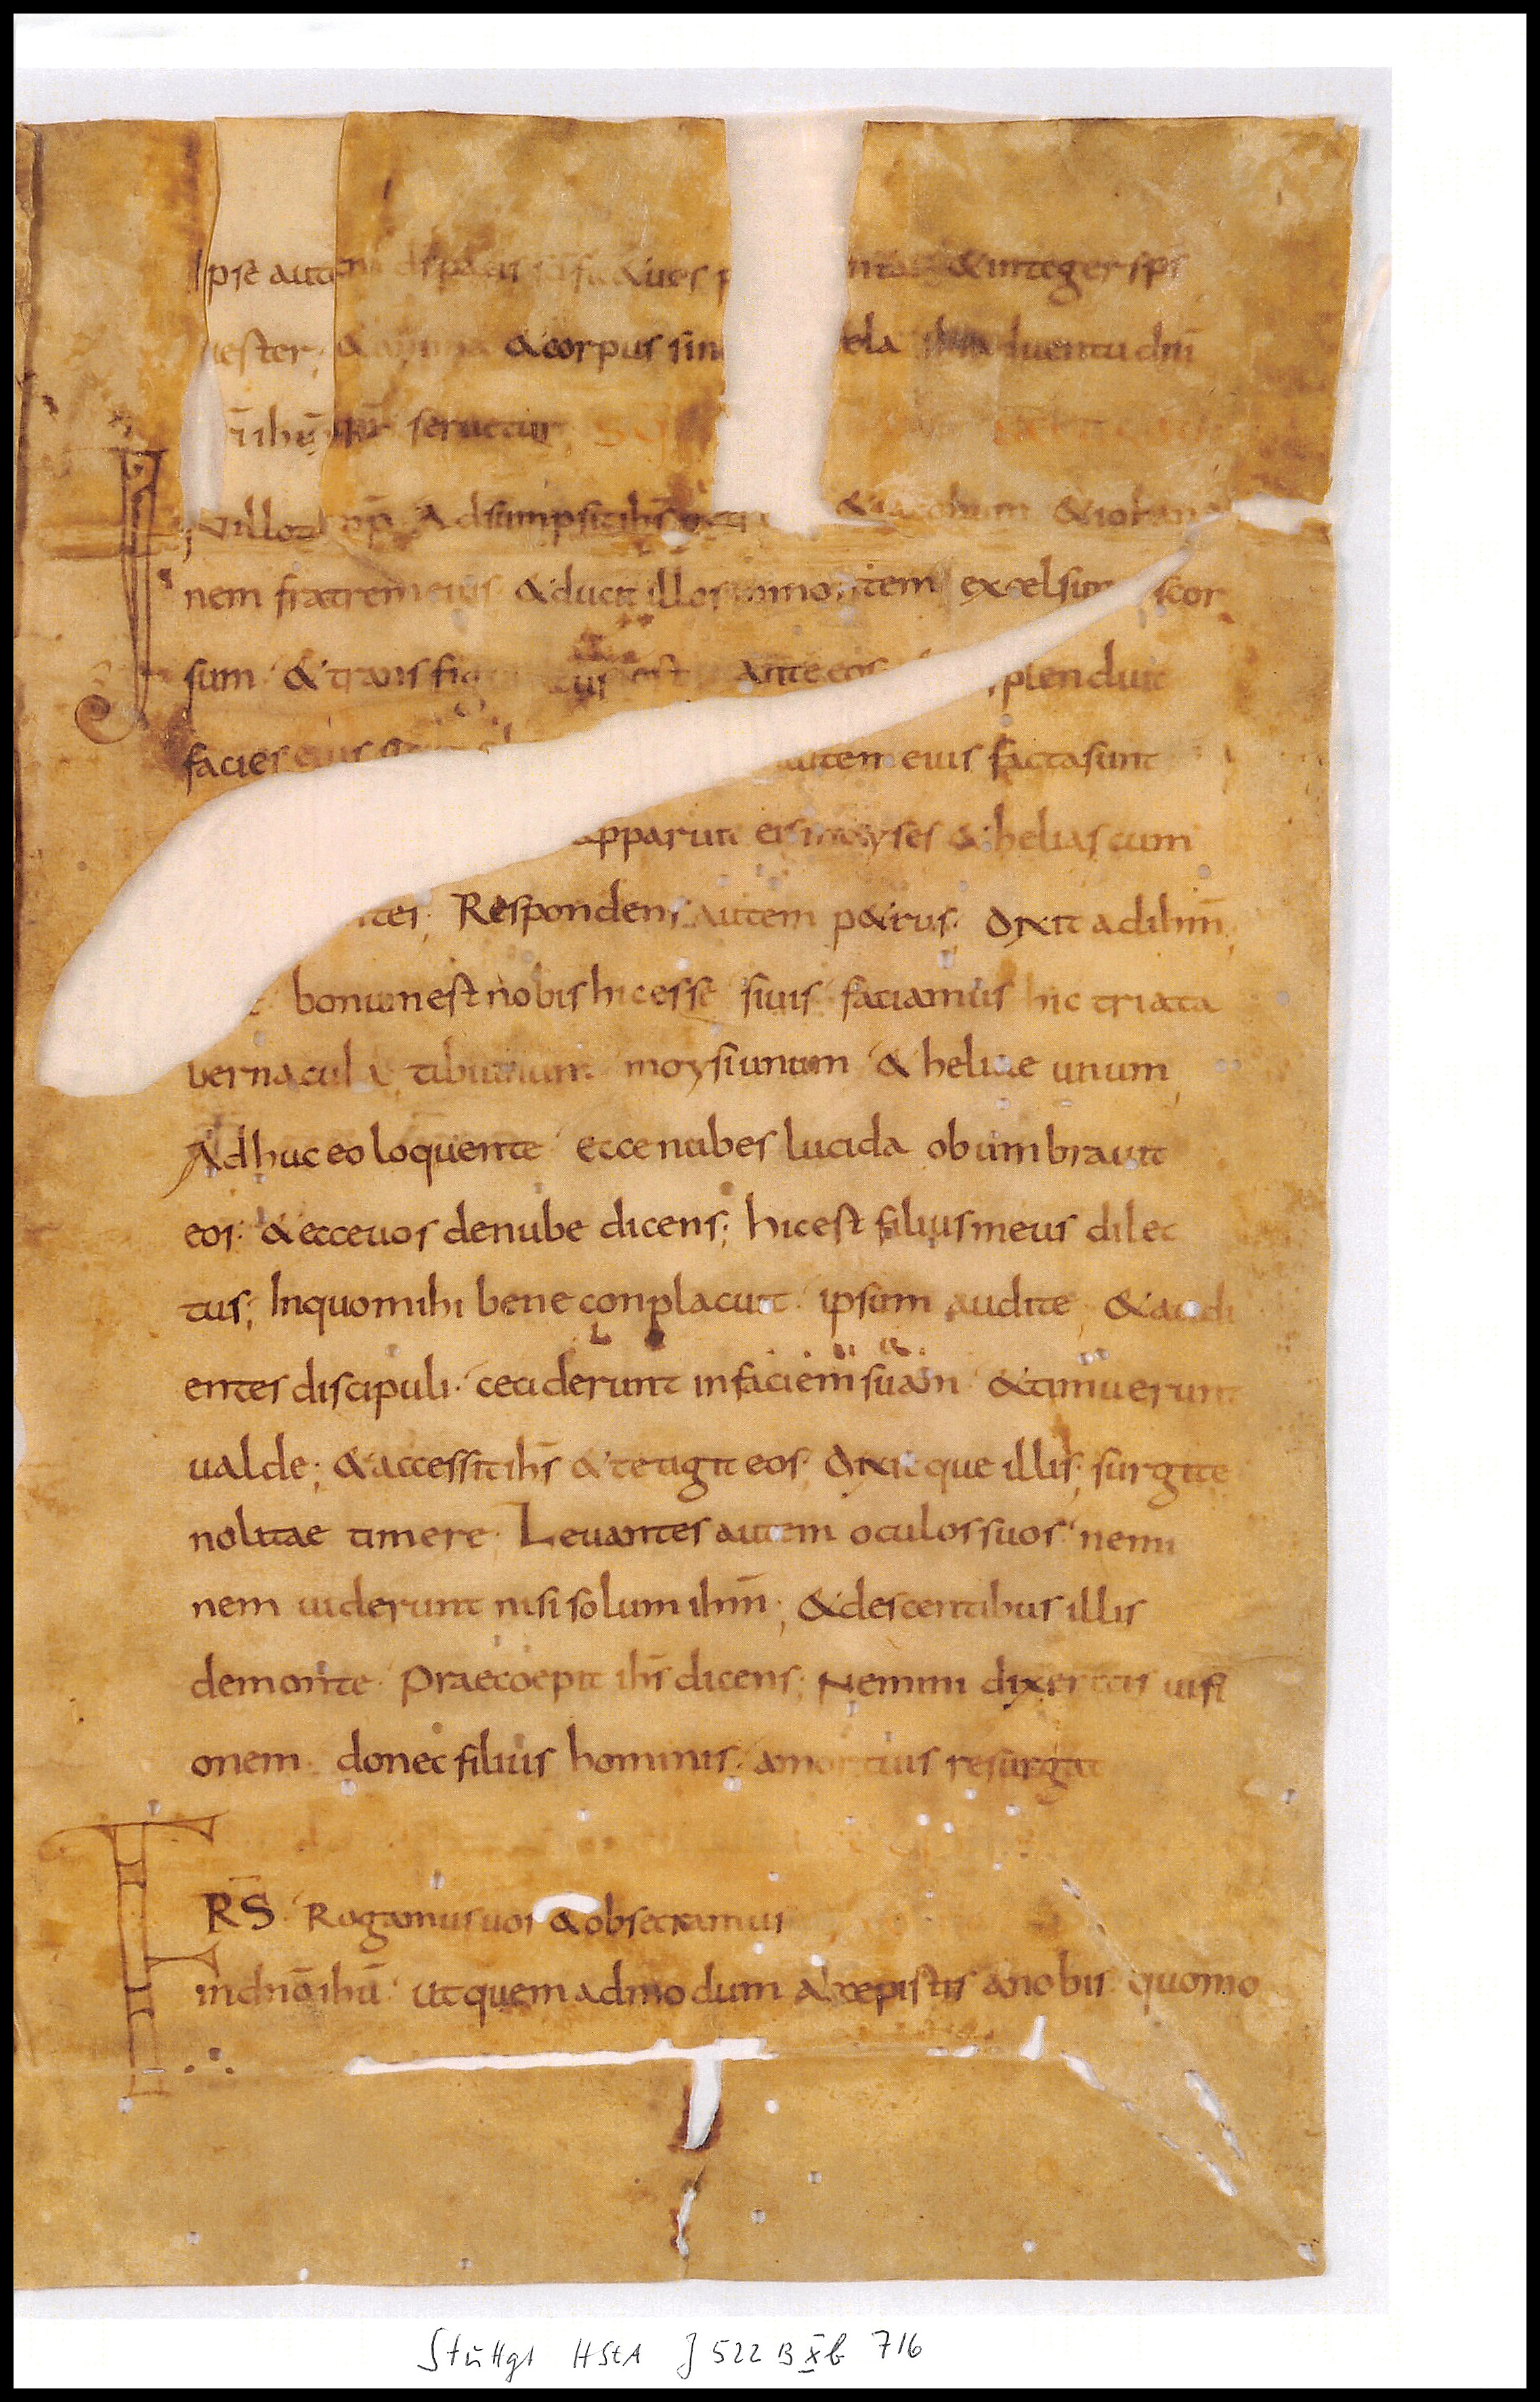 Ipse aut d̄s pacis & uos &integer sp̄s
uester; & anima &corpus sine ela aduentu dn̄i
n̄i ihū xp̄i seruetur
N illo t̄ mp̄ Adsumpsit ihs̄ &iacobum &iohan
nem fratrem eius &ducit illos in montem excelsum seor
sum & transfig est ante eos splenduit
facies eius autem eius facta sunt
apparuit eis moyses & helias cum
ntes; Respondens autem p&rus. dixit ad ihm̄;
bonum est nobis hic esse si uis faciamus hic tria ta
bernacula tibi unum moysi unum & heliae unum
Adhuc eo loquente ecce nubes lucida obumbrauit
eos. & ecce uox de nube dicens; hic est filius meus dilec
tus; In quo mihi bene conplacuit ipsum audite; &audi
entes discipuli. ceciderunt in faciem suam &timuerunt
ualde; &accessit ihs̄ &tetigit eos. dixitque illis; surgite
nolitae timere Leuantes autem oculos suos nemi
nem uiderunt nisi solum ihm̄; &descentibus illis
de monte. Praecoepit ihs̄ dicens; Nemini dixeritis uisi
onem. donec filius hominis. a mortuis resurgat
F
RS̄ Rogamus uos &obsecramus
in dn̄o ihū ut quemadmodum accepistis a nobis quomo
Stuttgt HStA J 522 B X b 716